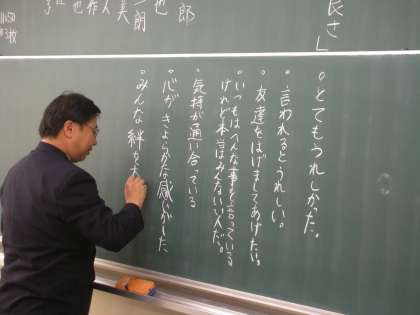 良さ」
郎
也
一朗
美
人
作
。とてもうれしかった。
。言われるとうれしい。
。友達をはげましてあげたい。
。いつもはへんな事を言っている
けれど本当はみんないい人だ。
。気持が通い合っている
。心がきよらかな感じがした
。みんな絆を